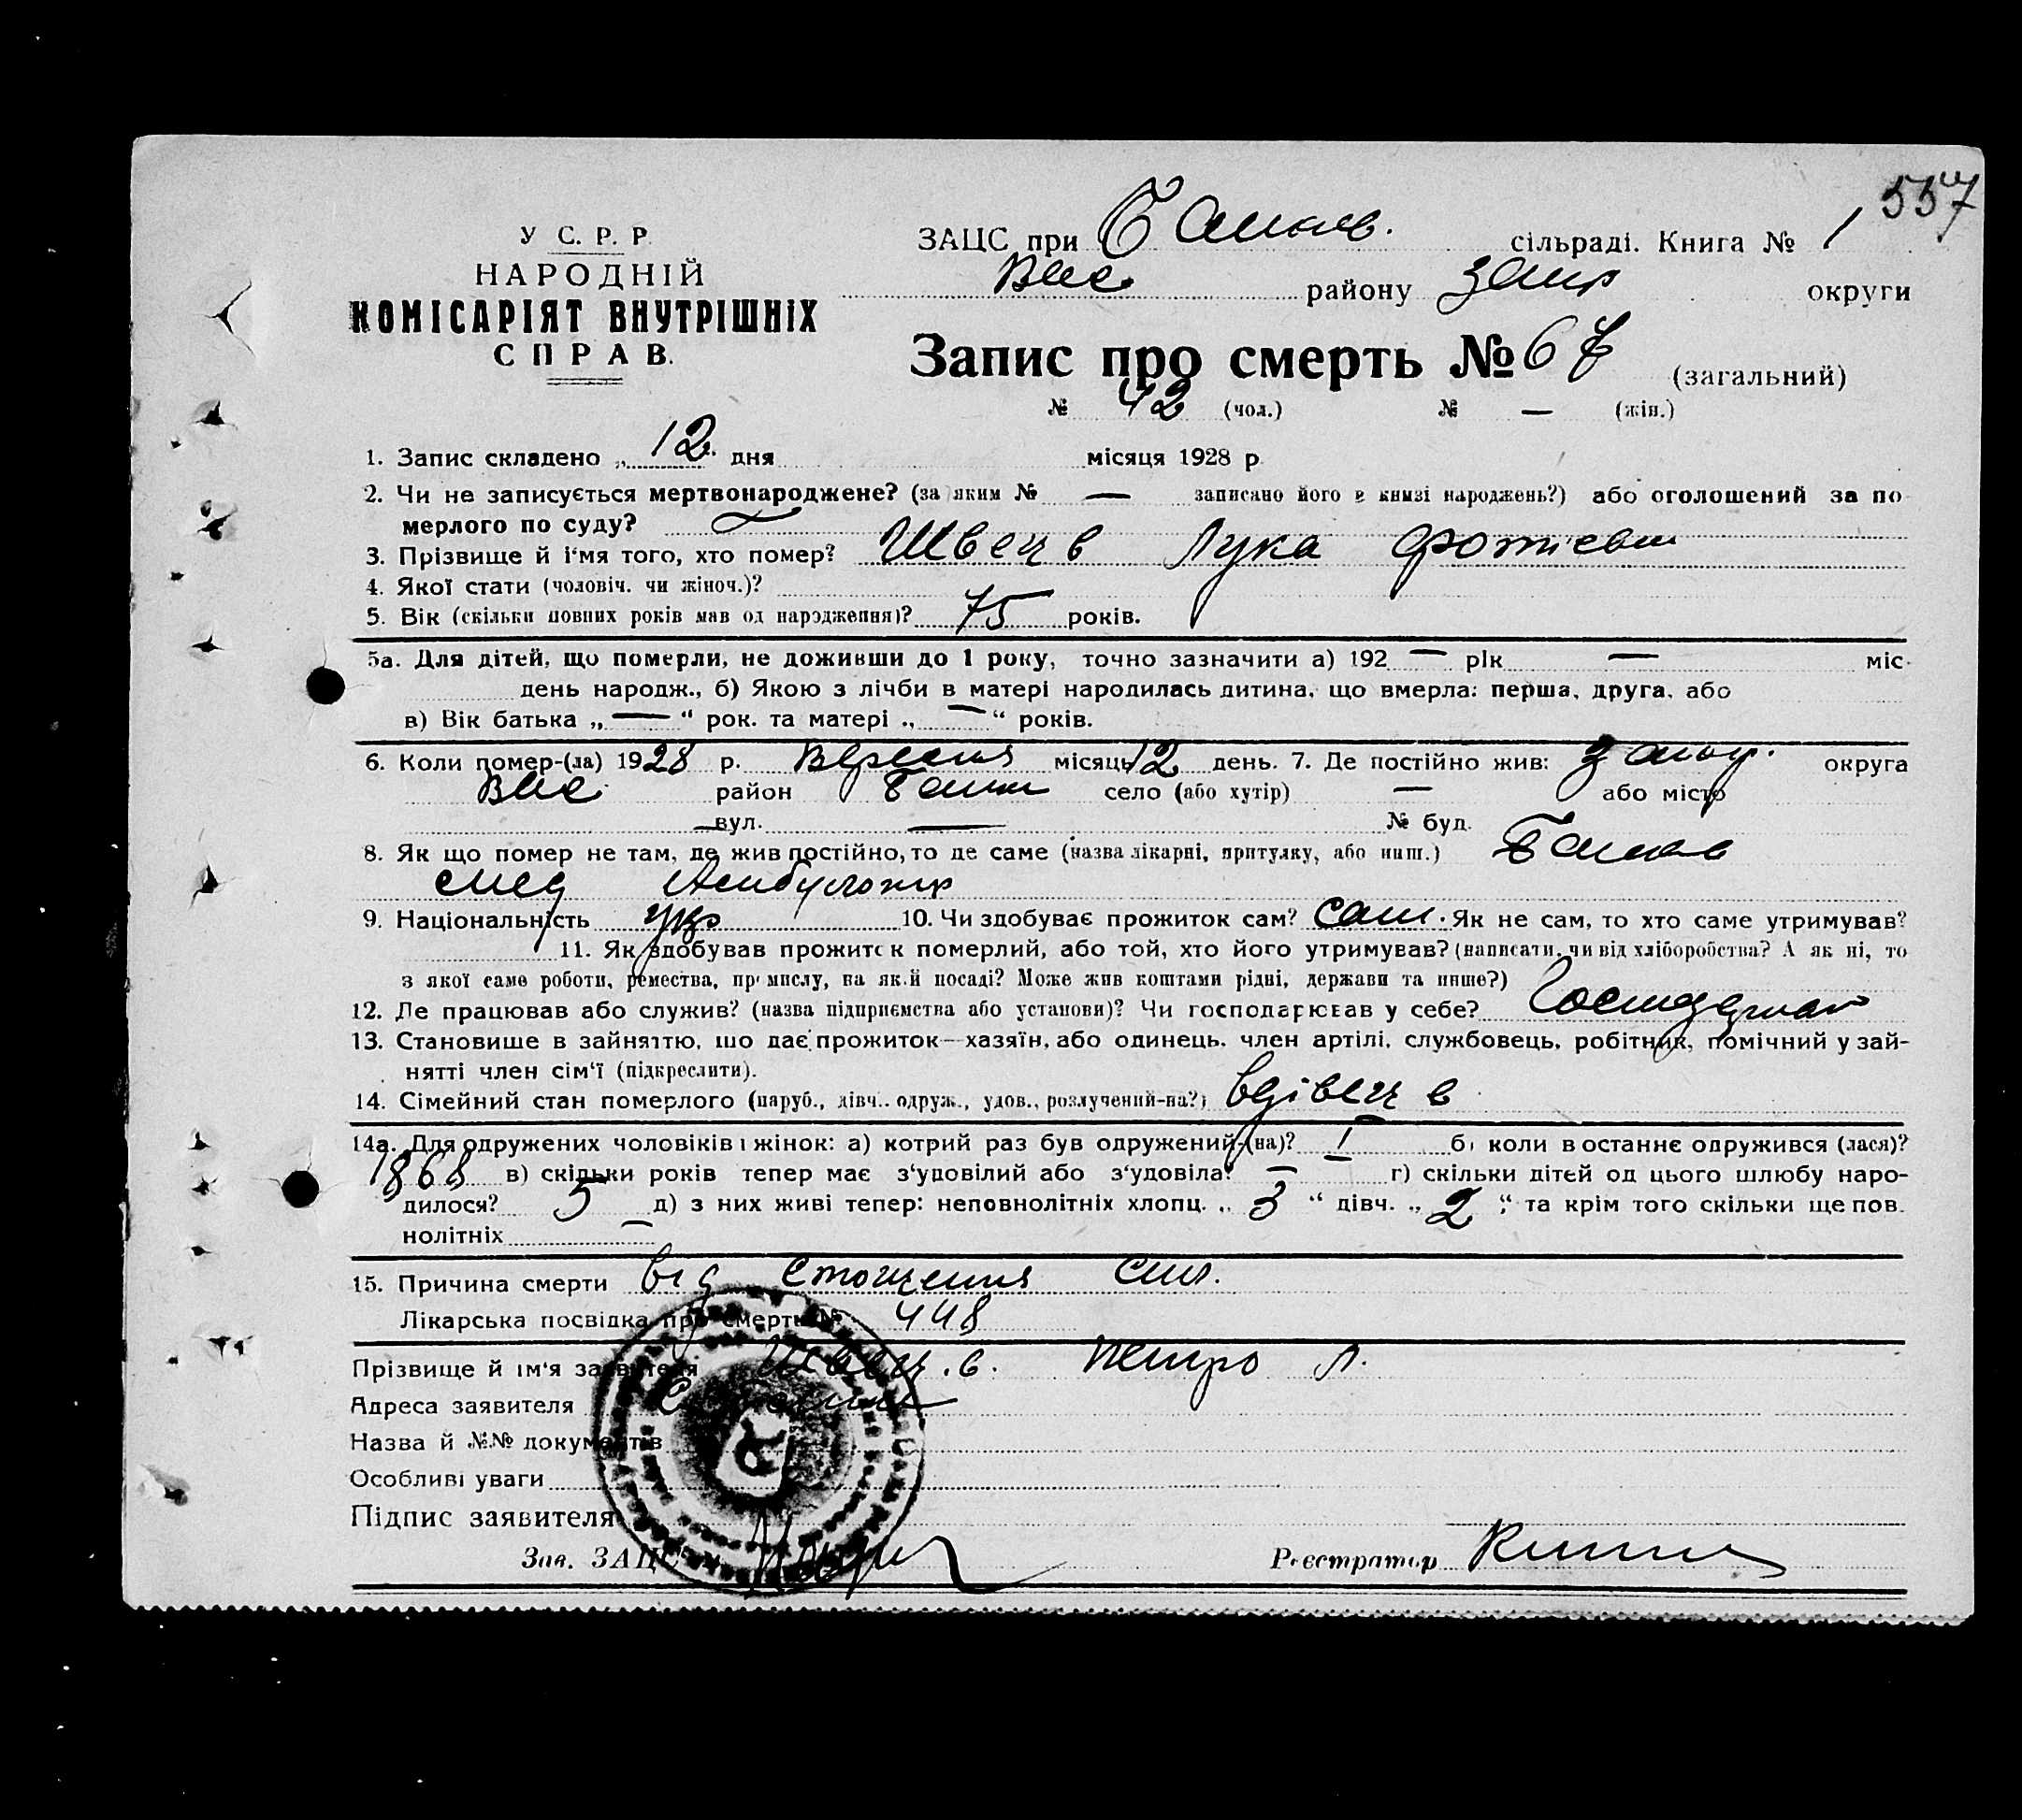 557
У С. Р. Р.
НАРОДНІЙ
КОМІСАРІЯТ ВНУТРІШНІХ
СПРАВ.
ЗАЦС при сільраді. Книга № 1
району округи
Запис про смерть № 67 (загальний)
№ 42 (чол.) № — (жін.)
1. Запис складено „ 12 дня місяця 1928 р.
2. Чи не записується мертвонароджене? (за яким № — записано його в книзі народжень?) або оголошений за по
мерлого по суду?
3. Прізвище й і'мя того, хто помер? Швець Лука Фотиевич
4. Якої стати (чоловіч. чи жіноч.)?
5. Вік (скільки повних років мав од народження)? 75 років.
5а. Для дітей, що померли, не доживши до 1 року, точно зазначити а) 192 — рік — міс.
день народж., б) Якою з лічби в матері народилась дитина, що вмерла: перша, друга, або
в) Вік батька „ — “ рок. та матері „ — “ років.
6. Коли помер-(ла) 1928 р. Вересня місяць 12 день. 7. Де постійно жив: округа
район село (або хутір) — або місто
— вул. — № буд.
8. Як що помер не там, де жив постійно, то де саме (назва лікарні, притулку, або инш.)
9. Національність укр 10. Чи здобуває прожиток сам? сам. Як не сам, то хто саме утримував?
11. Як здобував прожиток померлий, або той, хто його утримував? (написати, чи від хліборобства? А як ні, то
з якої саме роботи, ремества, промислу, на як.й посаді? Може жив коштами рідні, держави та инше?)
12. Де працював або служив? (назва підприємства або установи)? Чи господарював у себе?
13. Становище в зайняттю, що дає прожиток—хазяїн, або одинець, член артілі, службовець, робітник, помічний у зай-
нятті член сім'ї (підкреслити).
14. Сімейний стан померлого (паруб., дівч.. одруж., удов., розлучений-на?) вдівець
14а. Для одружених чоловіків і жінок: а) котрий раз був одружений-(на)? I б) коли в останнє одружився (лася)?
1868 в) скільки років тепер має з'удовілий або з'удовіла? — г) скільки дітей од цього шлюбу наро-
дилося? 5 д) з них живі тепер: неповнолітніх хлопц. „ 3 “ дівч. „ 2 “ та крім того скільки ще пов.
нолітніх —
15. Причина смерти від стощения сил.
Лікарська посвідка про смерть № 448
Прізвище й ім'я заявителя Швець. Петро Л.
Адреса заявителя
Назва й №№ документів
Особливі уваги
Підпис заявителя
Зав. ЗАЦС'у Реєстратор